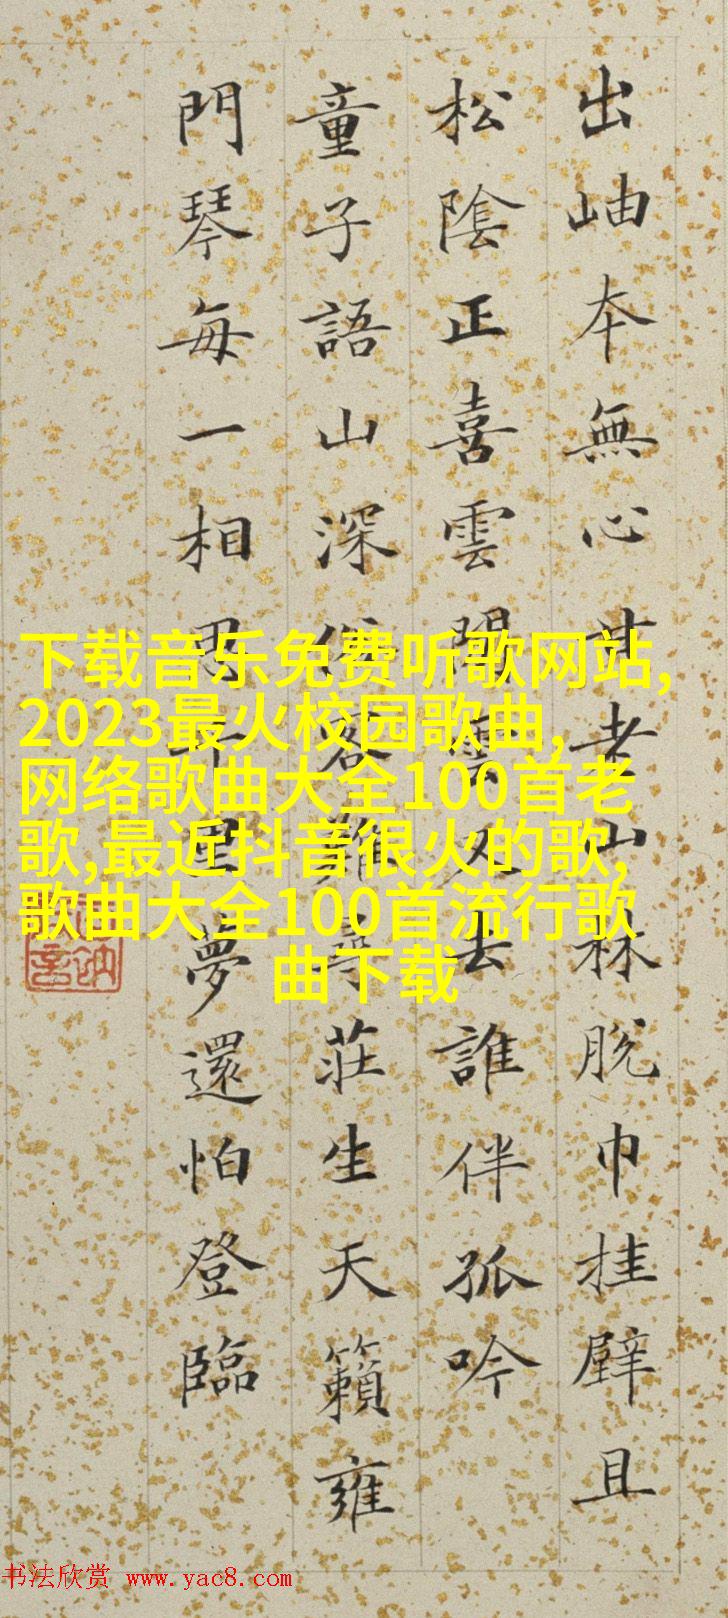 出岫本無心甘老山林脫巾挂壁且
松陰正喜雲閒雲又去誰伴孤吟
童子語山深俗客難尋莊生天籟雍
門琴每一相思千里夢還怕登臨
下载音乐免费听歌网站,
2023最火校园歌曲,
网络歌曲大全100首老
歌,最近抖音很火的歌,
歌曲大全100首流行歌
曲下载
书法欣赏 www.yac8.com